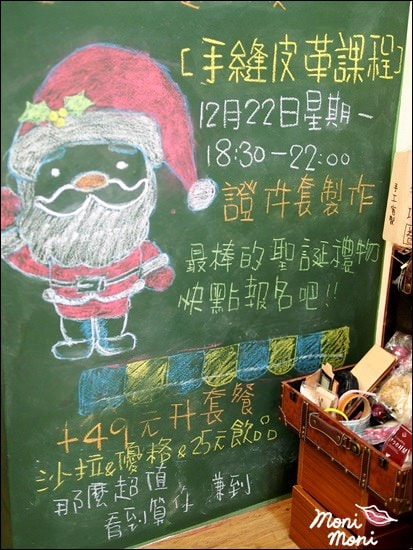 [手縫皮革課程]
12月22日星期一
18:30-22:00
證件套製作
最棒的聖誕禮物
快點報名吧!!
+49元升套餐
沙拉&優格&25元飲品
那麼超值
看到算你 賺到
Moni
Moni